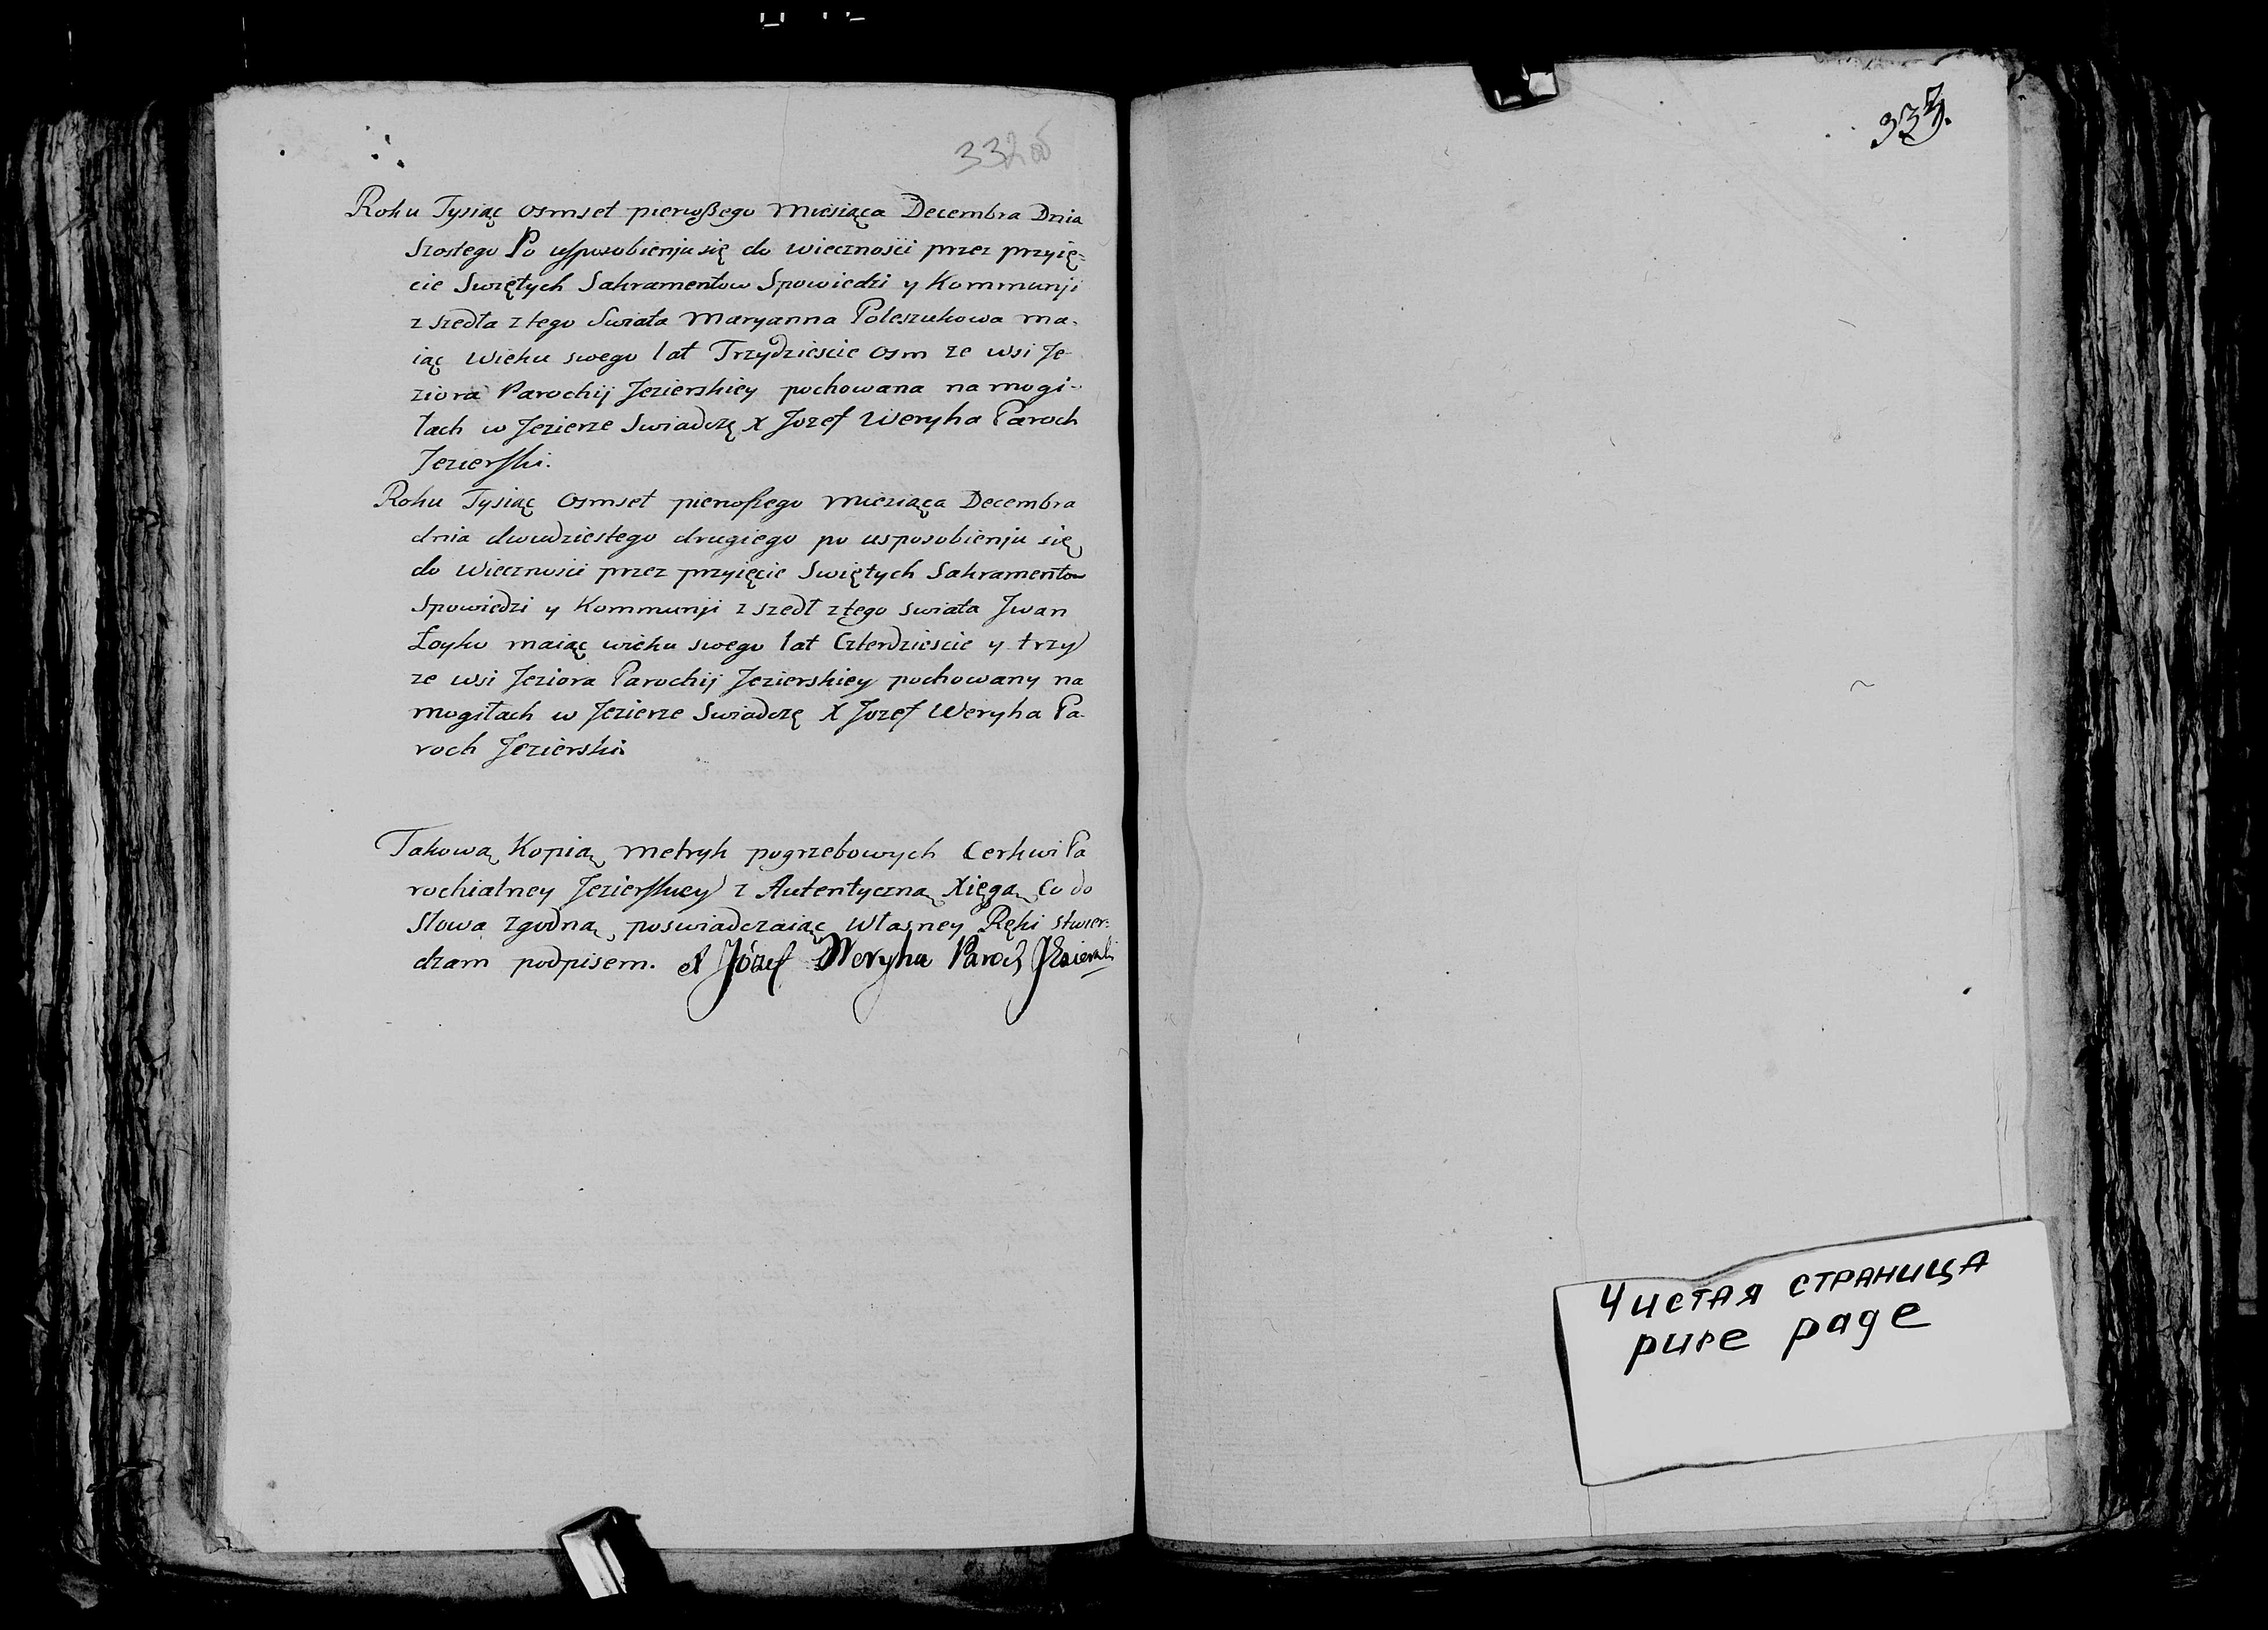 332 об
Roku Tysiąc osmset pierwßego Miesiąca Decembra Dnia
Szostego Po usposobieniu się do wiecznosci przez przyię-
cie Swiętych Sakramentow Spowiedzi y Kommunji
z szedła z tego Swiata Maryanna Poleszukowa ma-
iąc Wieku swego lat Trzydziescie osm ze wsi Je-
ziora Parochij Jezierskiey pochowana na mogi-
łach w Jezierze Swiadczę X Jozef Weryha Paroch
Jezierski.
Roku Tysiąc Osmset pierwßego Mieziąca Decembra
dnia dwudziestego drugiego po usposobieniu się
do Wiecznosci przez przyięcie Swiętych Sakramentow
Spowiedzi y Kommunji z szedł z tego swiata Jwan
Łoyko maiąc wieku swego lat Czterdziescie y trzy
ze wsi Jeziora Parochij Jezierskiey pochowany na
mogiłach w Jezierze Swiadczę X Jozef Weryha Pa-
roch Jezierski.
Takową Kopią metryk pogrzebowych Cerkwi Pa
rochialney Jezierskiey z Autentyczną Xięgą Co do
Słowa zgodną, poswiadczaiąc Własney Ręki stwier-
dzam podpisem. X Józef Weryha Paroch Jezierski
333.
Чистая страница
pure page